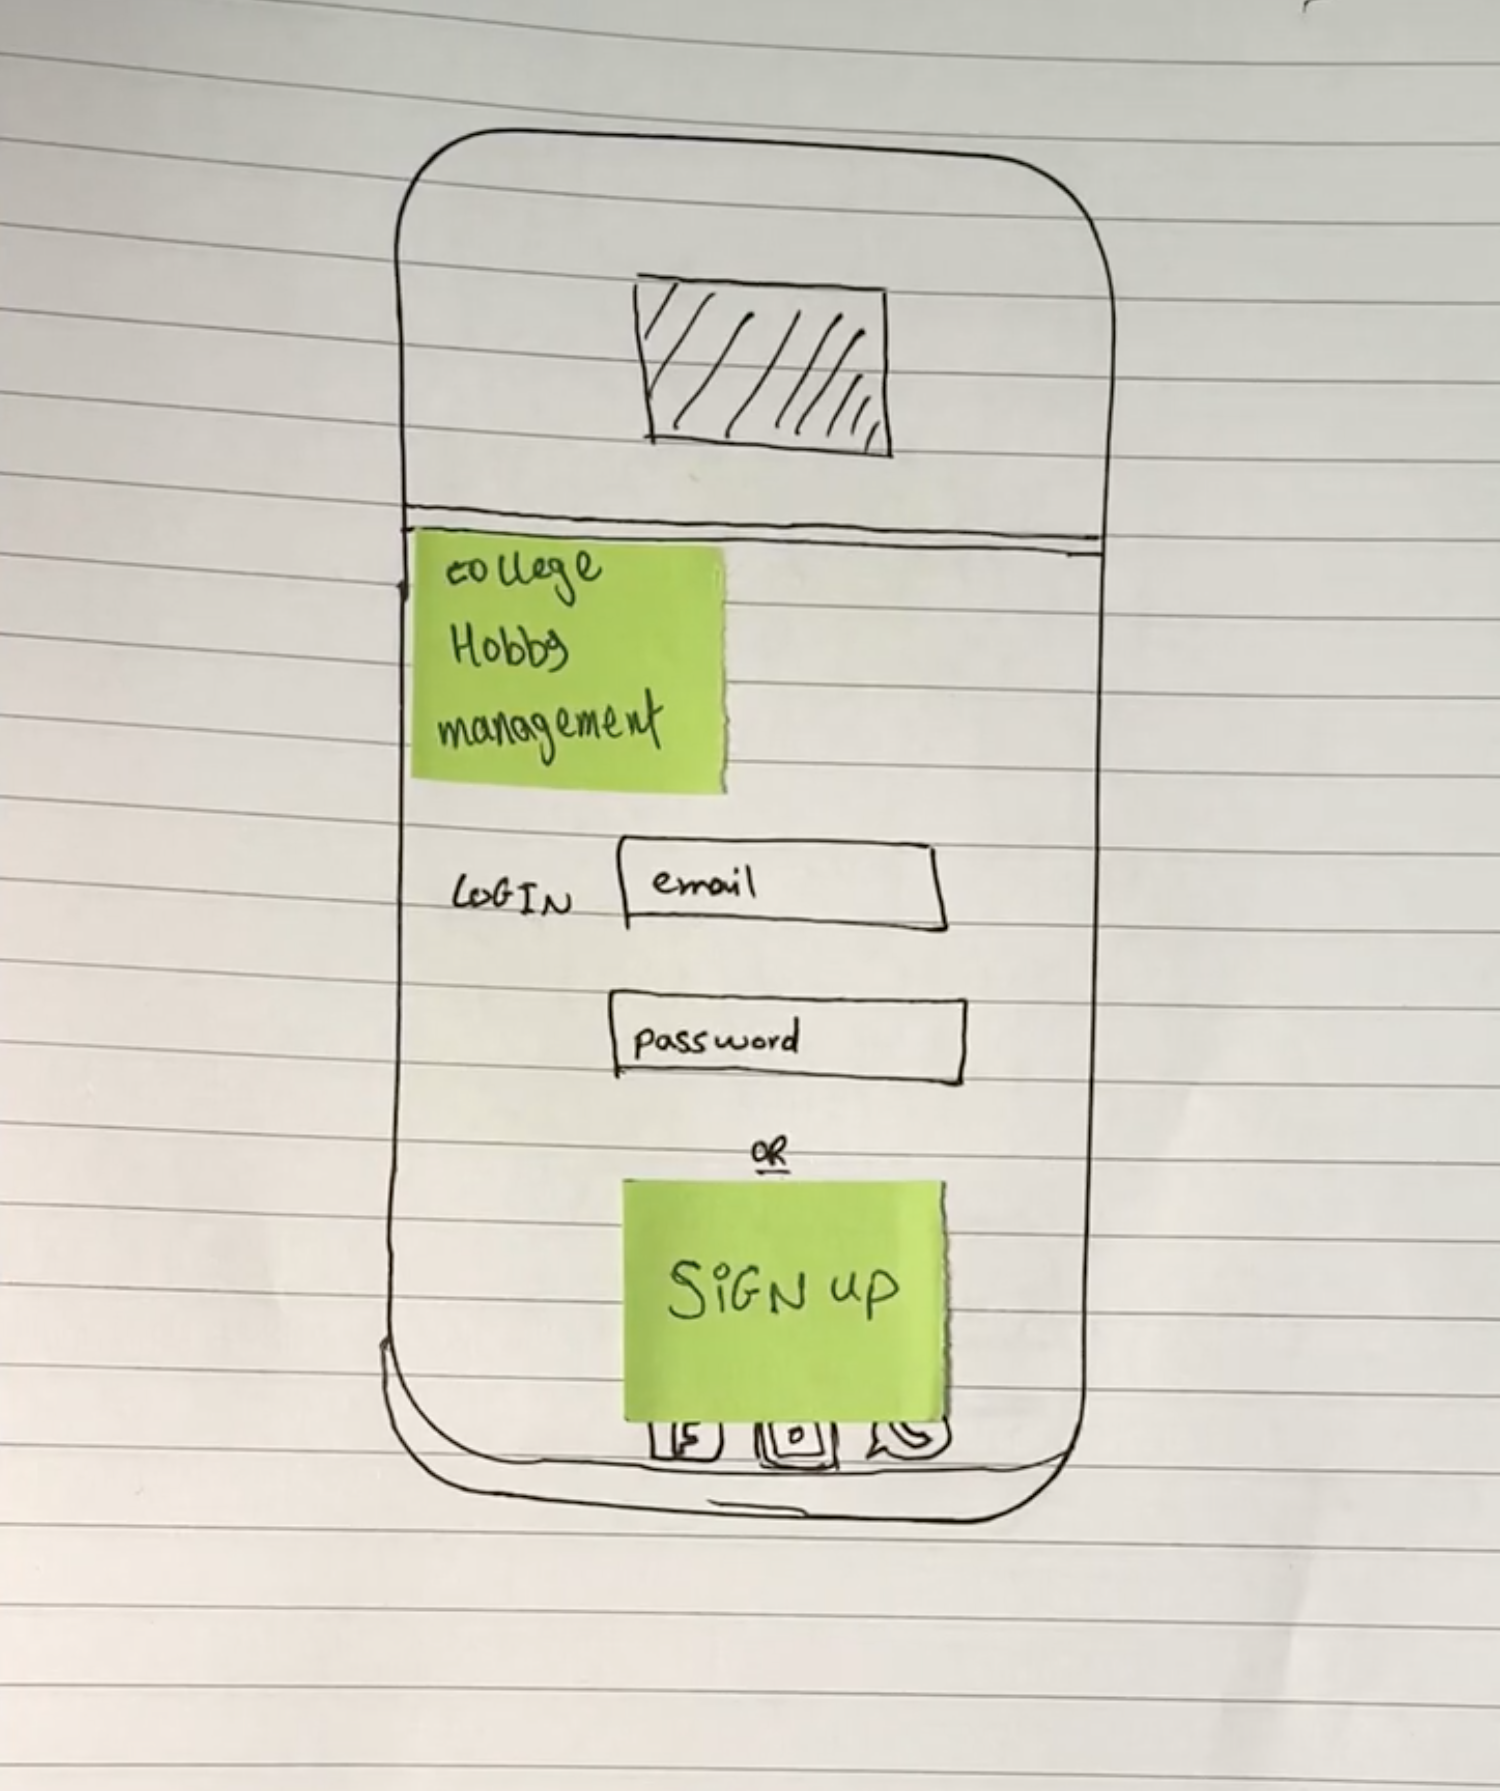 college
Hobby
management
LOGIN email
password
OR
SiGN UP